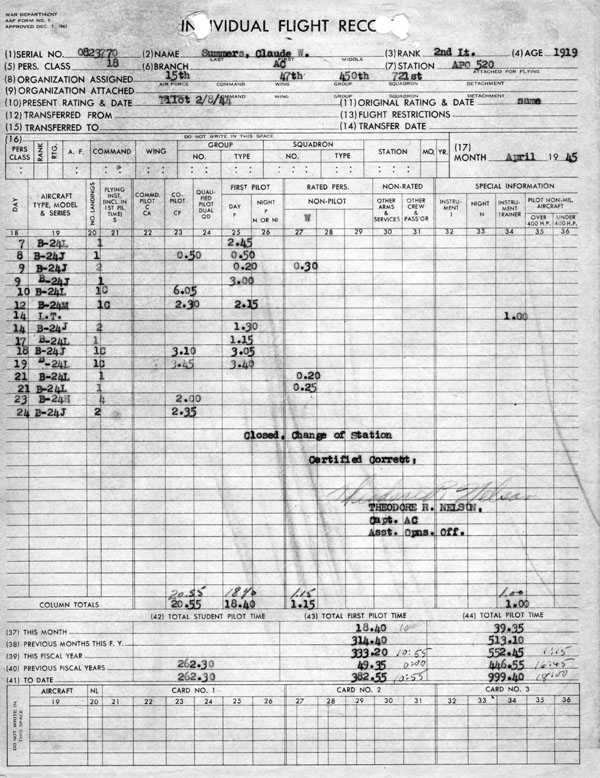 WAR DEPARTMENT
AAF FORM NO. 5
APPROVED DEC. 7, 1942
INDIVIDUAL FLIGHT RECO
(1) SERIAL NO. 0823770 (2) NAME Summers, Claude W. (3) RANK 2nd Lt. (4) AGE 1919
LAST FIRST MIDDLE
(5) PERS. CLASS 18 (6) BRANCH AC (7) STATION APO 520
(8) ORGANIZATION ASSIGNED 15th 47th 450th 721st ATTACHED FOR FLYING
AIR FORCE COMMAND WING GROUP SQUADRON DETACHMENT
(9) ORGANIZATION ATTACHED
AIR FORCE COMMAND WING GROUP SQUADRON DETACHMENT
(10) PRESENT RATING & DATE Pilot 2/8/44 (11) ORIGINAL RATING & DATE same
(12) TRANSFERRED FROM (13) FLIGHT RESTRICTIONS
(15) TRANSFERRED TO (14) TRANSFER DATE
(16) DO NOT WRITE IN THIS SPACE
PERS CLASS RANK RTG. A. F. COMMAND WING GROUP NO. TYPE SQUADRON NO. TYPE STATION MO. YR. (17) MONTH April 1945
DAY AIRCRAFT TYPE, MODEL & SERIES NO. LANDINGS FLYING INST. (INCL. IN 1ST PIL. TIME) S COMMD. PILOT C CA CO-PILOT CP QUALI-FIED PILOT DUAL QD FIRST PILOT DAY P NIGHT N OR NI RATED PERS. NON-PILOT W NON-RATED OTHER ARMS & SERVICES OTHER CREW & PASS'GR SPECIAL INFORMATION INSTRUMENT I NIGHT N INSTRUMENT TRAINER PILOT NON-MIL. AIRCRAFT OVER 400 H.P. UNDER 400 H.P.
18 19 20 21 22 23 24 25 26 27 28 29 30 31 32 33 34 35 36
7 B-24L 1 2.45
8 B-24J 1 0.50 0.50
9 B-24J 2 0.20 0.30
9 B-24J 1 3.00
10 B-24L 1C 6.05
12 B-24M 1C 2.30 2.15
14 L.T. 1.00
14 B-24J 2 1.30
17 B-24L 1 1.15
18 B-24J 1C 3.10 3.05
19 B-24L 1C 3.45 3.40
21 B-24L 1 0.20
21 B-24L 1 0.25
23 B-24H 4 2.00
24 B-24J 2 2.35
Closed, Change of Station
Certified Correct:
Theodore R. Nelson
THEODORE R. NELSON,
Capt. AC
Asst. Opns. Off.
20.55 1840 1.15 1.00
COLUMN TOTALS 20.55 18.40 1.15 1.00
(42) TOTAL STUDENT PILOT TIME (43) TOTAL FIRST PILOT TIME (44) TOTAL PILOT TIME
(37) THIS MONTH 18.40 39.35
(38) PREVIOUS MONTHS THIS F. Y. 314.40 513.10
(39) THIS FISCAL YEAR 333.20 10:55 552.45 1:15
(40) PREVIOUS FISCAL YEARS 262.30 49.35 0:00 446.55 16:45
(41) TO DATE 262.30 382.55 10:55 999.40 18:00
AIRCRAFT NL CARD NO. 1 CARD NO. 2 CARD NO. 3
19 20 21 22 23 24 25 26 27 28 29 30 31 32 33 34 35 36
DO NOT WRITE IN THIS SPACE